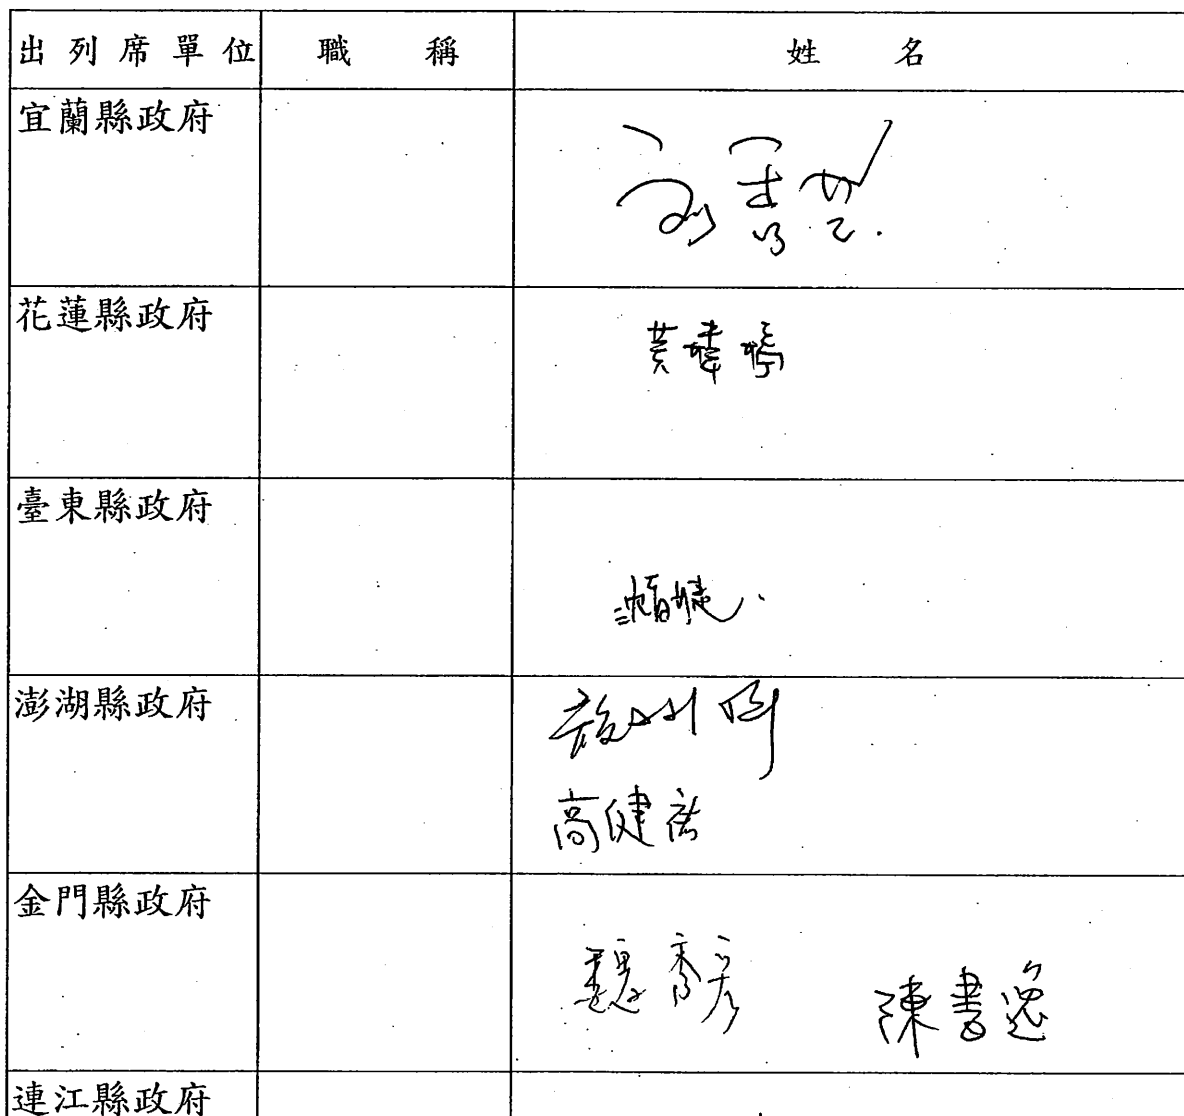 出列席單位 職稱 姓名
宜蘭縣政府
花蓮縣政府
黃
臺東縣政府
澎湖縣政府
高健
金門縣政府
魏喬彥 陳書逸
連江縣政府